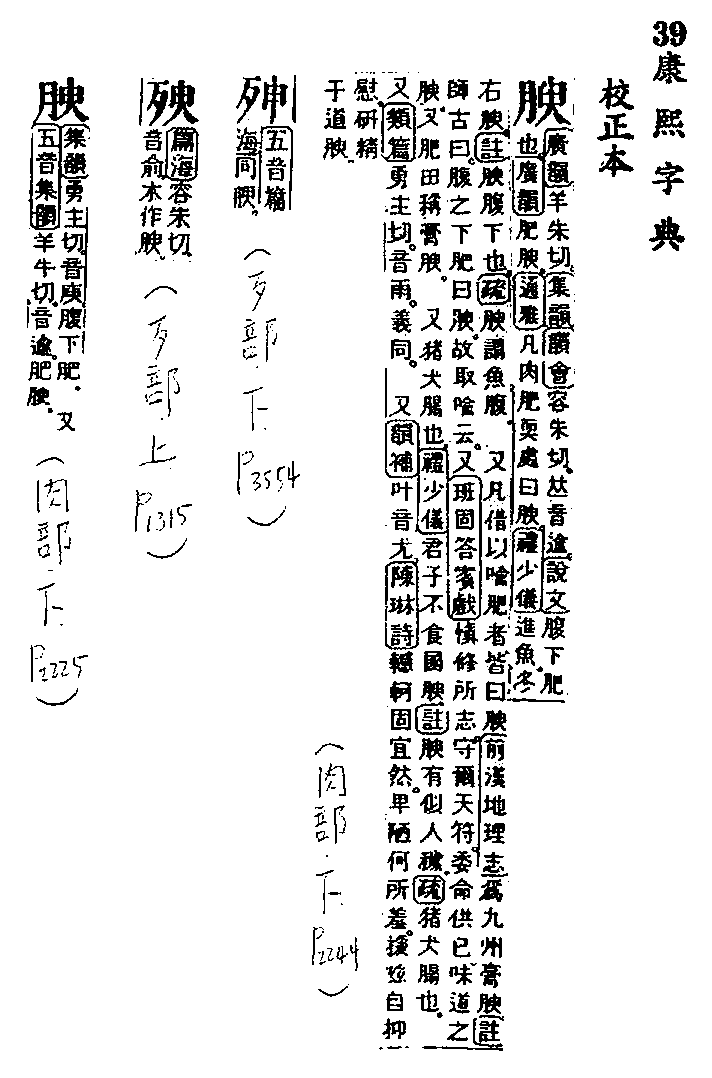 39
康熙字典
校正本
腴
廣韻羊朱切集韻韻會容朱切𠀤音逾說文腹下肥
也廣韻肥腴通雅凡肉肥耎處曰腴禮少儀進魚冬
右腴註腴腹下也疏腴謂魚腹 又凡借以喻肥者皆曰腴前漢地理志爲九州膏腴註
師古曰腹之下肥曰腴故取喻云又班固答賓戲愼修所志守爾天符委命供已味道之
腴又肥田稱膏腴 又猪犬腸也禮少儀君子不食圂腴註腴有似人穢疏猪犬腸也
又類篇勇主切音雨義同 又韻補叶音尤陳琳詩轗軻固宜然卑陋何所羞援茲自抑
慰硏精
于道腴
(肉部·下
P2244)
五音篇
海同腴
(歹部·下
P3554)
篇海容朱切
音俞本作腴
(歹部·上
P1315)
集韻勇主切音庾腹下肥 又
五音集韻羊牛切音逾肥腴
(肉部·下
P2225)